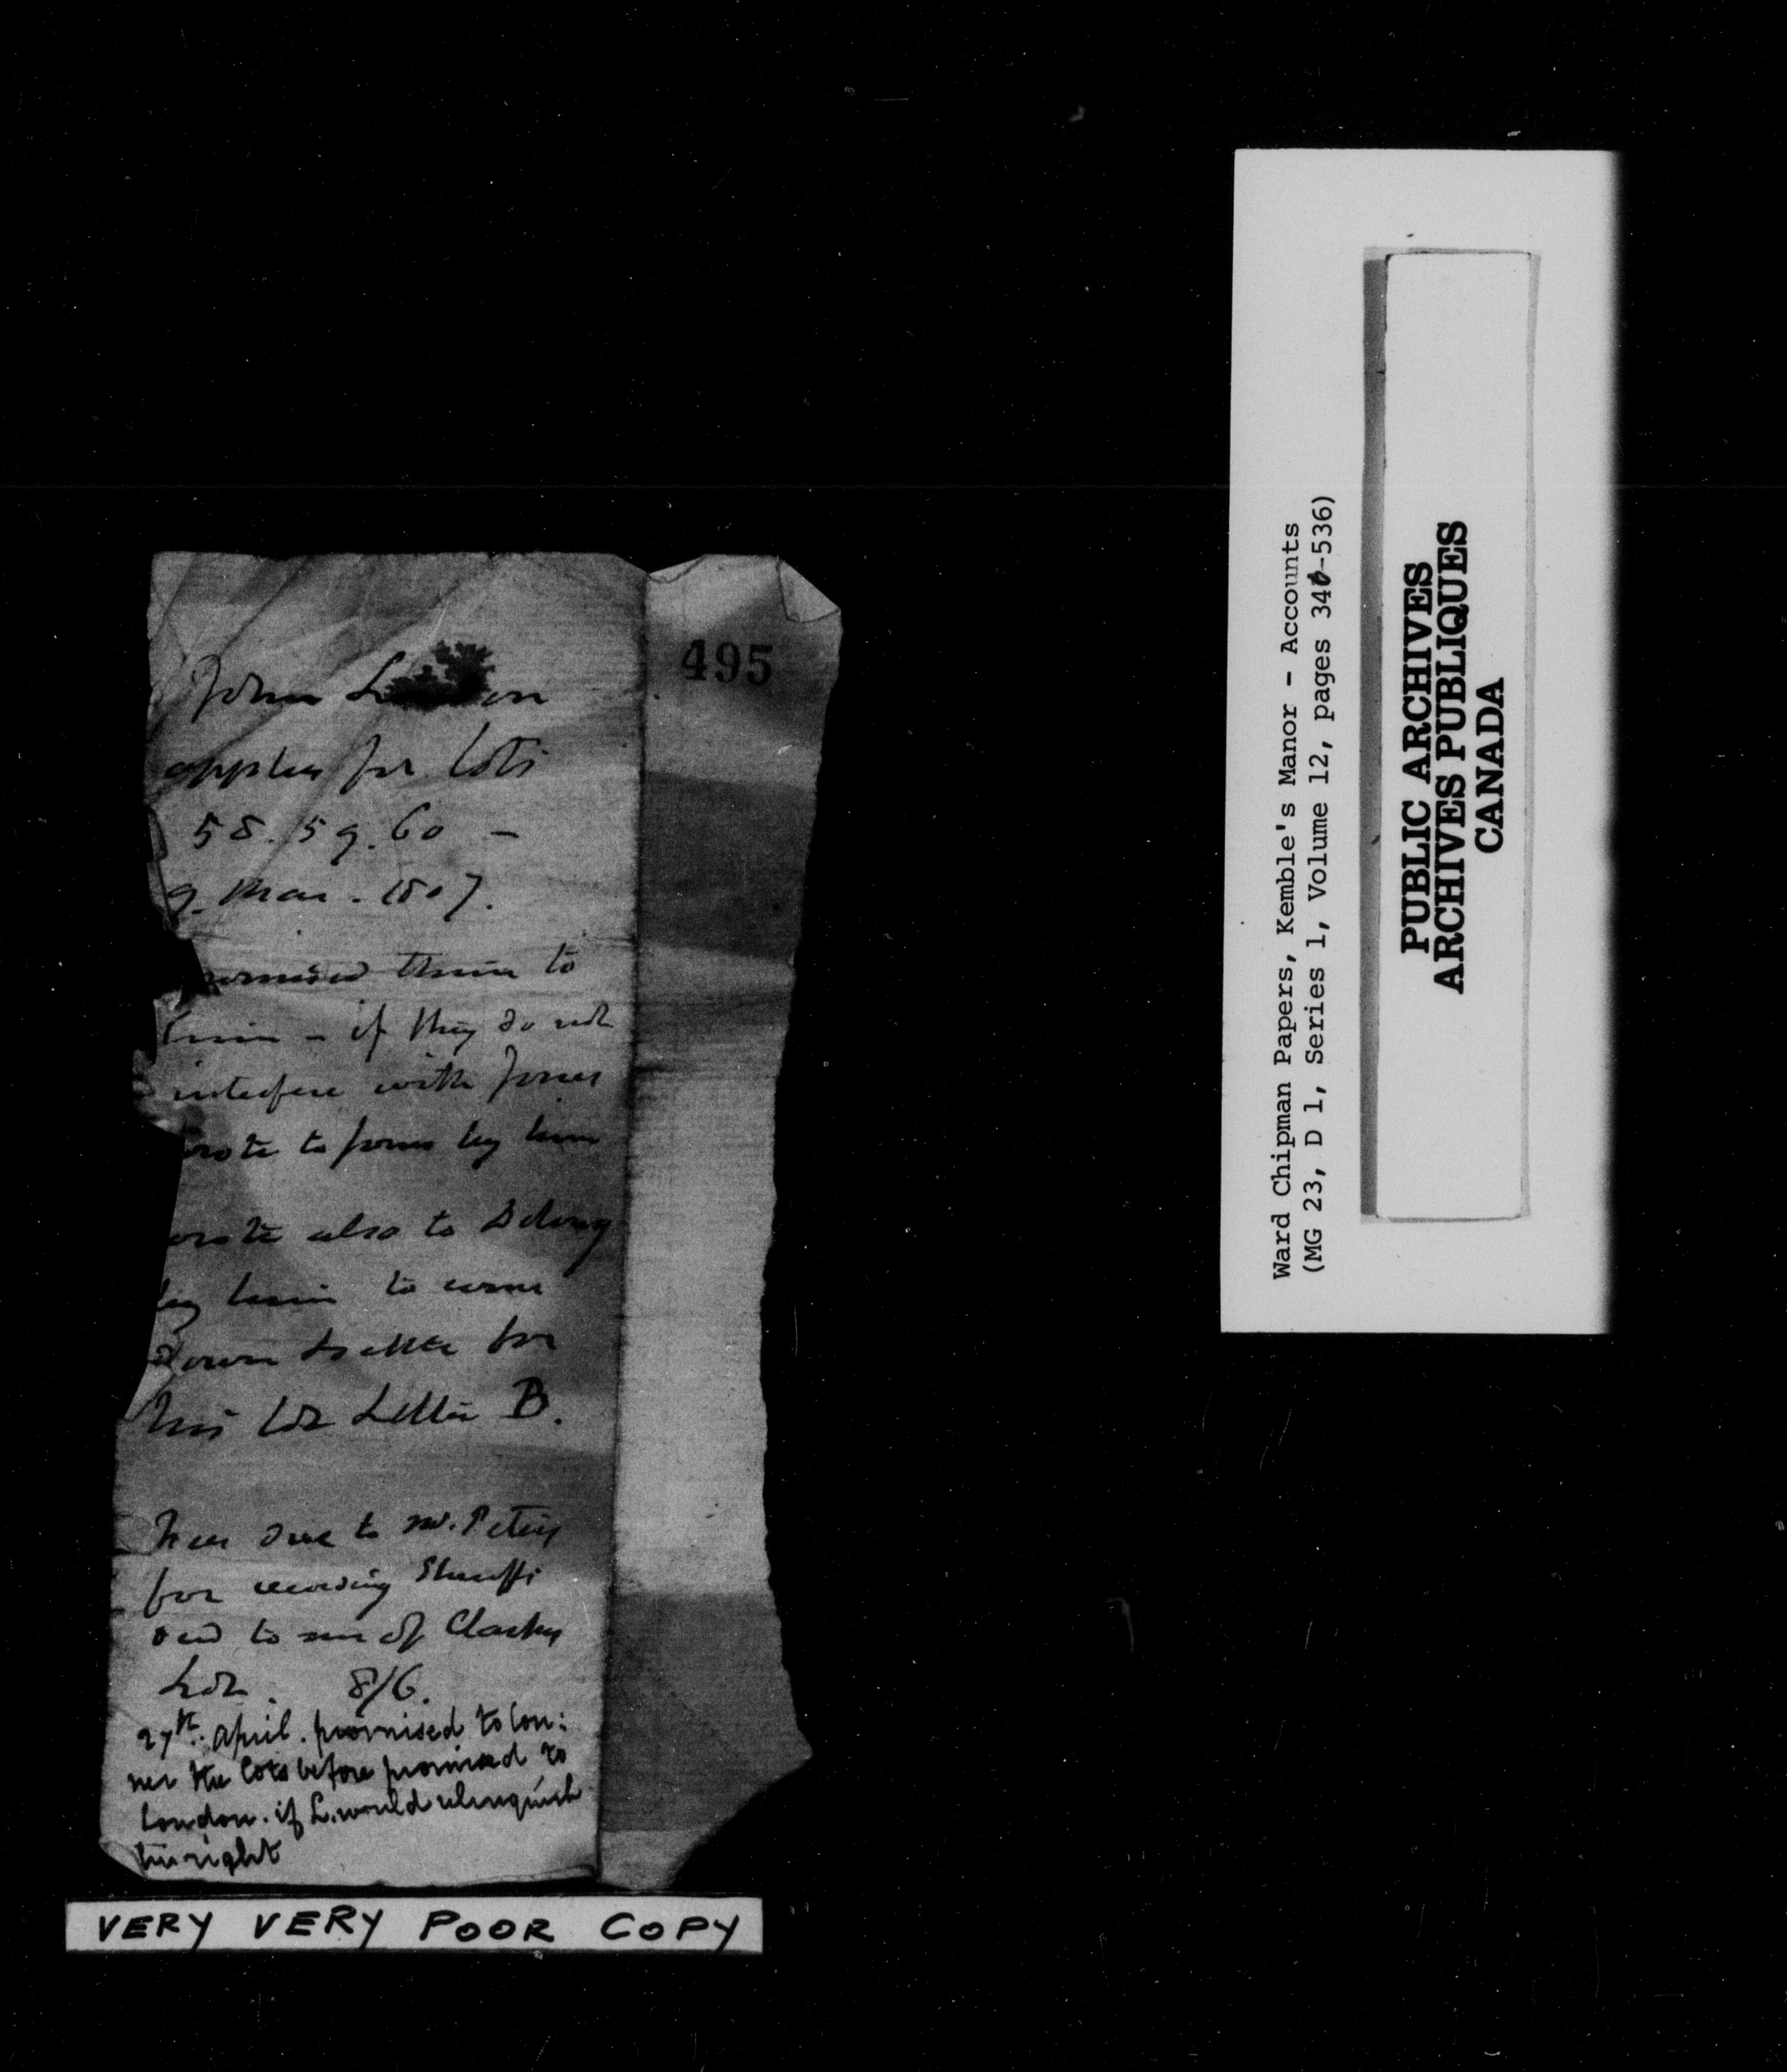 495
John L on
applies for Lots
58. 59. 60 –
9. Mar. 1807.
promised them to
him – if they do not
interfere with Jones
wrote to Jones by him
wrote also to Delong
by him to come
down & settle for
his Lot Letter B.
Fees due to Mr. Peters
for recording Sheriffs
deed to me of Clarkes
Lot. 8/6.
27th. April. promised to Con:
ner the Lots before promised to
London. if L. would relinquish
his right
VERY VERY POOR COPY
Ward Chipman Papers, Kemble's Manor - Accounts
(MG 23, D 1, Series 1, Volume 12, pages 346-536)
PUBLIC ARCHIVES
ARCHIVES PUBLIQUES
CANADA